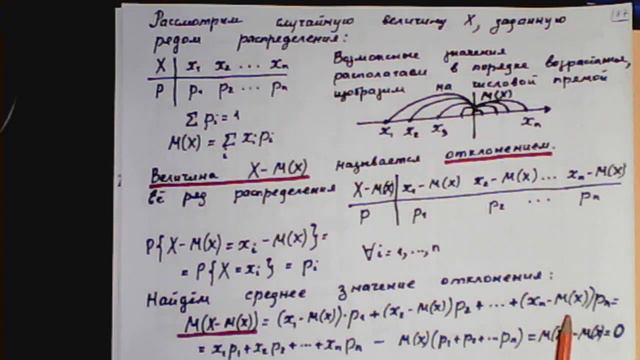 Рассмотрим случайную величину X, заданную
рядом распределения:
X | x₁ x₂ ... xₙ
P | p₁ p₂ ... pₙ
Возможные значения
располагаем в порядке возрастания,
изобразим на числовой прямой
Σ pᵢ = 1
M(X) = Σ xᵢ pᵢ
i
M(X)
x₁ x₂ x₃ xₙ
Величина X - M(X) называется отклонением.
её ряд распределения
X-M(X) | x₁-M(X) x₂-M(X) ... xₙ-M(X)
P | p₁ p₂ ... pₙ
P{X-M(X) = xᵢ-M(X)} =
= P{X = xᵢ} = pᵢ ∀i = 1, ..., n
Найдём среднее значение отклонения:
M(X-M(X)) = (x₁-M(X))·p₁ + (x₂-M(X))p₂ + ... + (xₙ-M(X))pₙ =
= x₁p₁ + x₂p₂ + ... + xₙpₙ - M(X)(p₁+p₂+...pₙ) = M(X)-M(X) = 0